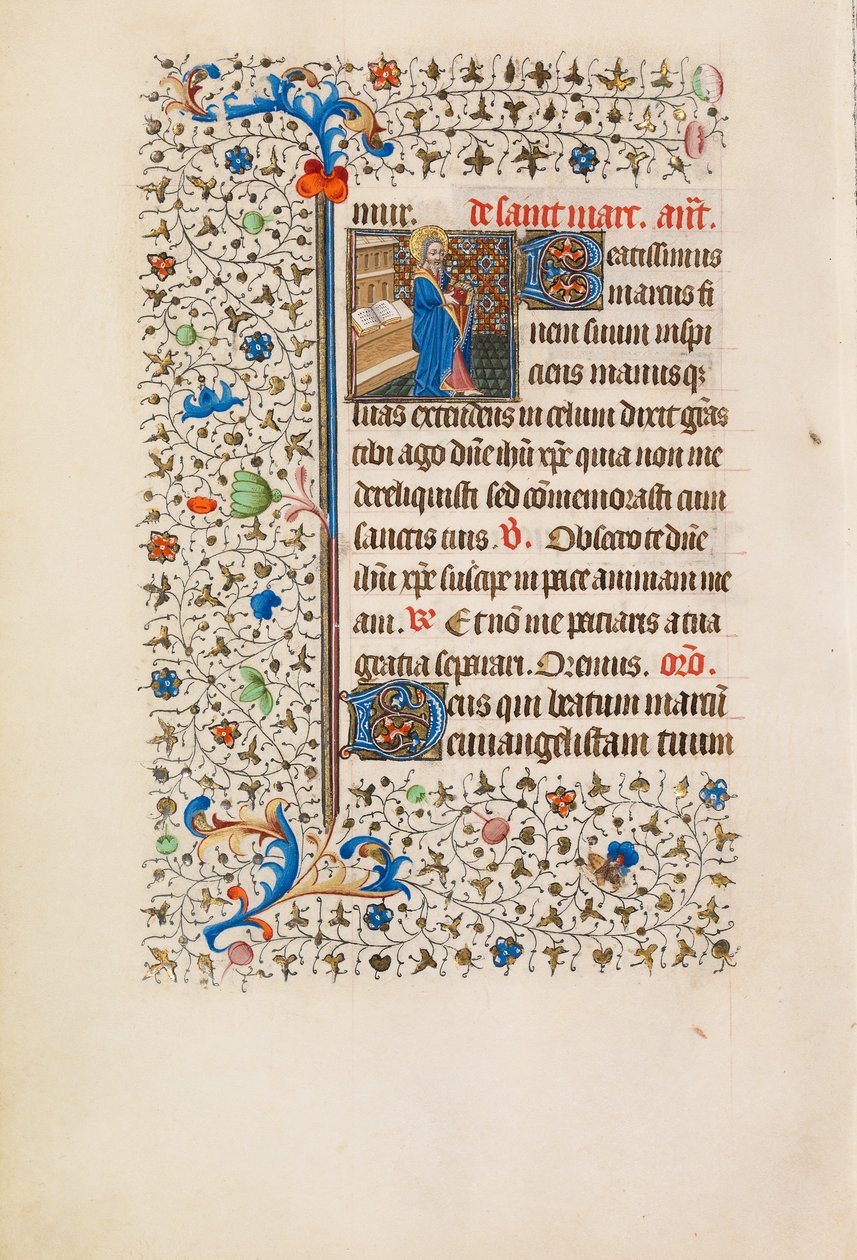 mur. de saint marc. ant̄.
Beatissimus
marcus fi
nem suum inspi
ciens manusqꝫ
suas extendens in celum dixit gr̄as
tibi ago dn̄e ihū xp̄e quia non me
dereliquisti sed cōmemorasti cum
sanctis tuis. V̄. Obsecro te dn̄e
ihū xp̄e suscipe in pace animam me
am. R̄ Et nō me paciaris a tua
gratia separari. Oremus. orō.
Deus qui beatum marcū
euuangelistam tuum